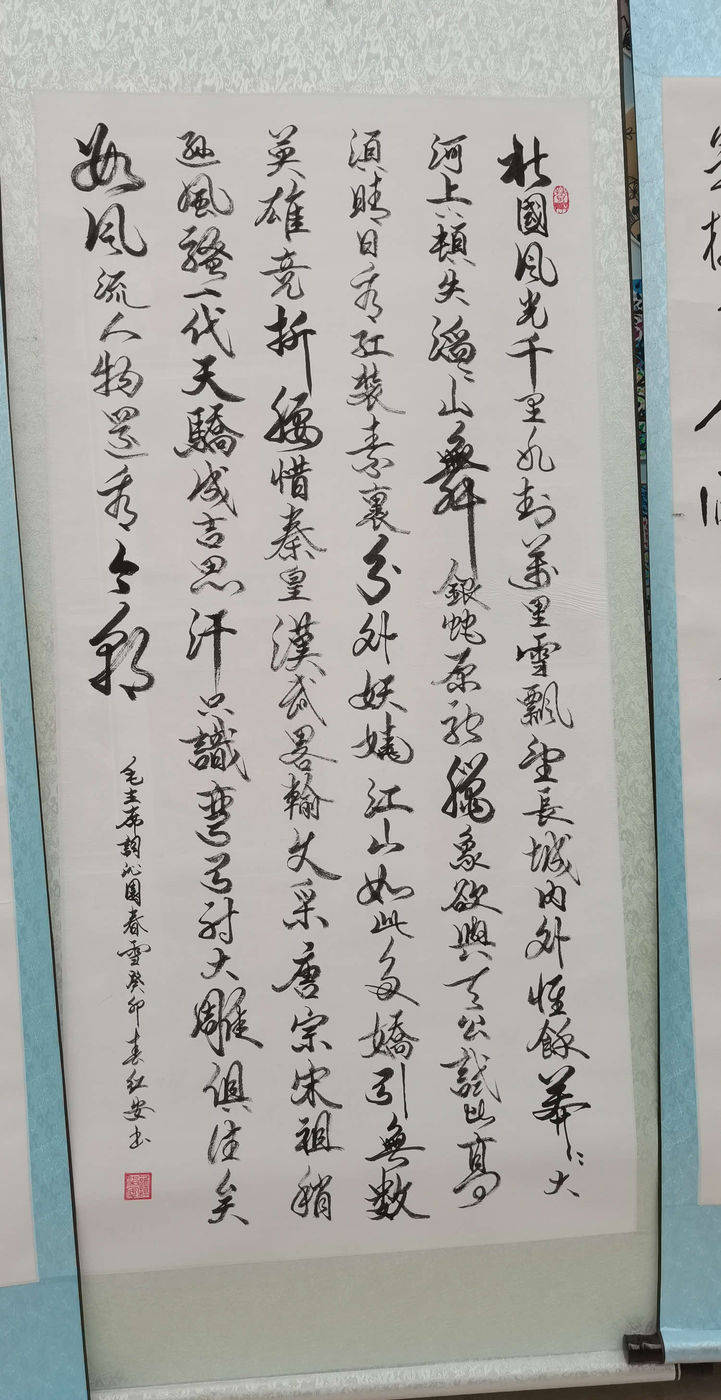 北國风光千里冰封萬里雪飄望長城内外惟餘莽〻大
河上下頓失滔〻山舞銀蛇原馳臘象欲與天公試比高
須晴日看紅裝素裹分外妖嬈江山如此多嬌引無數
英雄竞折腰惜秦皇漢武畧輸文采唐宗宋祖稍
遜風騷一代天驕成吉思汗只識彎弓射大雕俱往矣
數风流人物還看今朝
毛主席詞沁園春雪癸卯春红安书